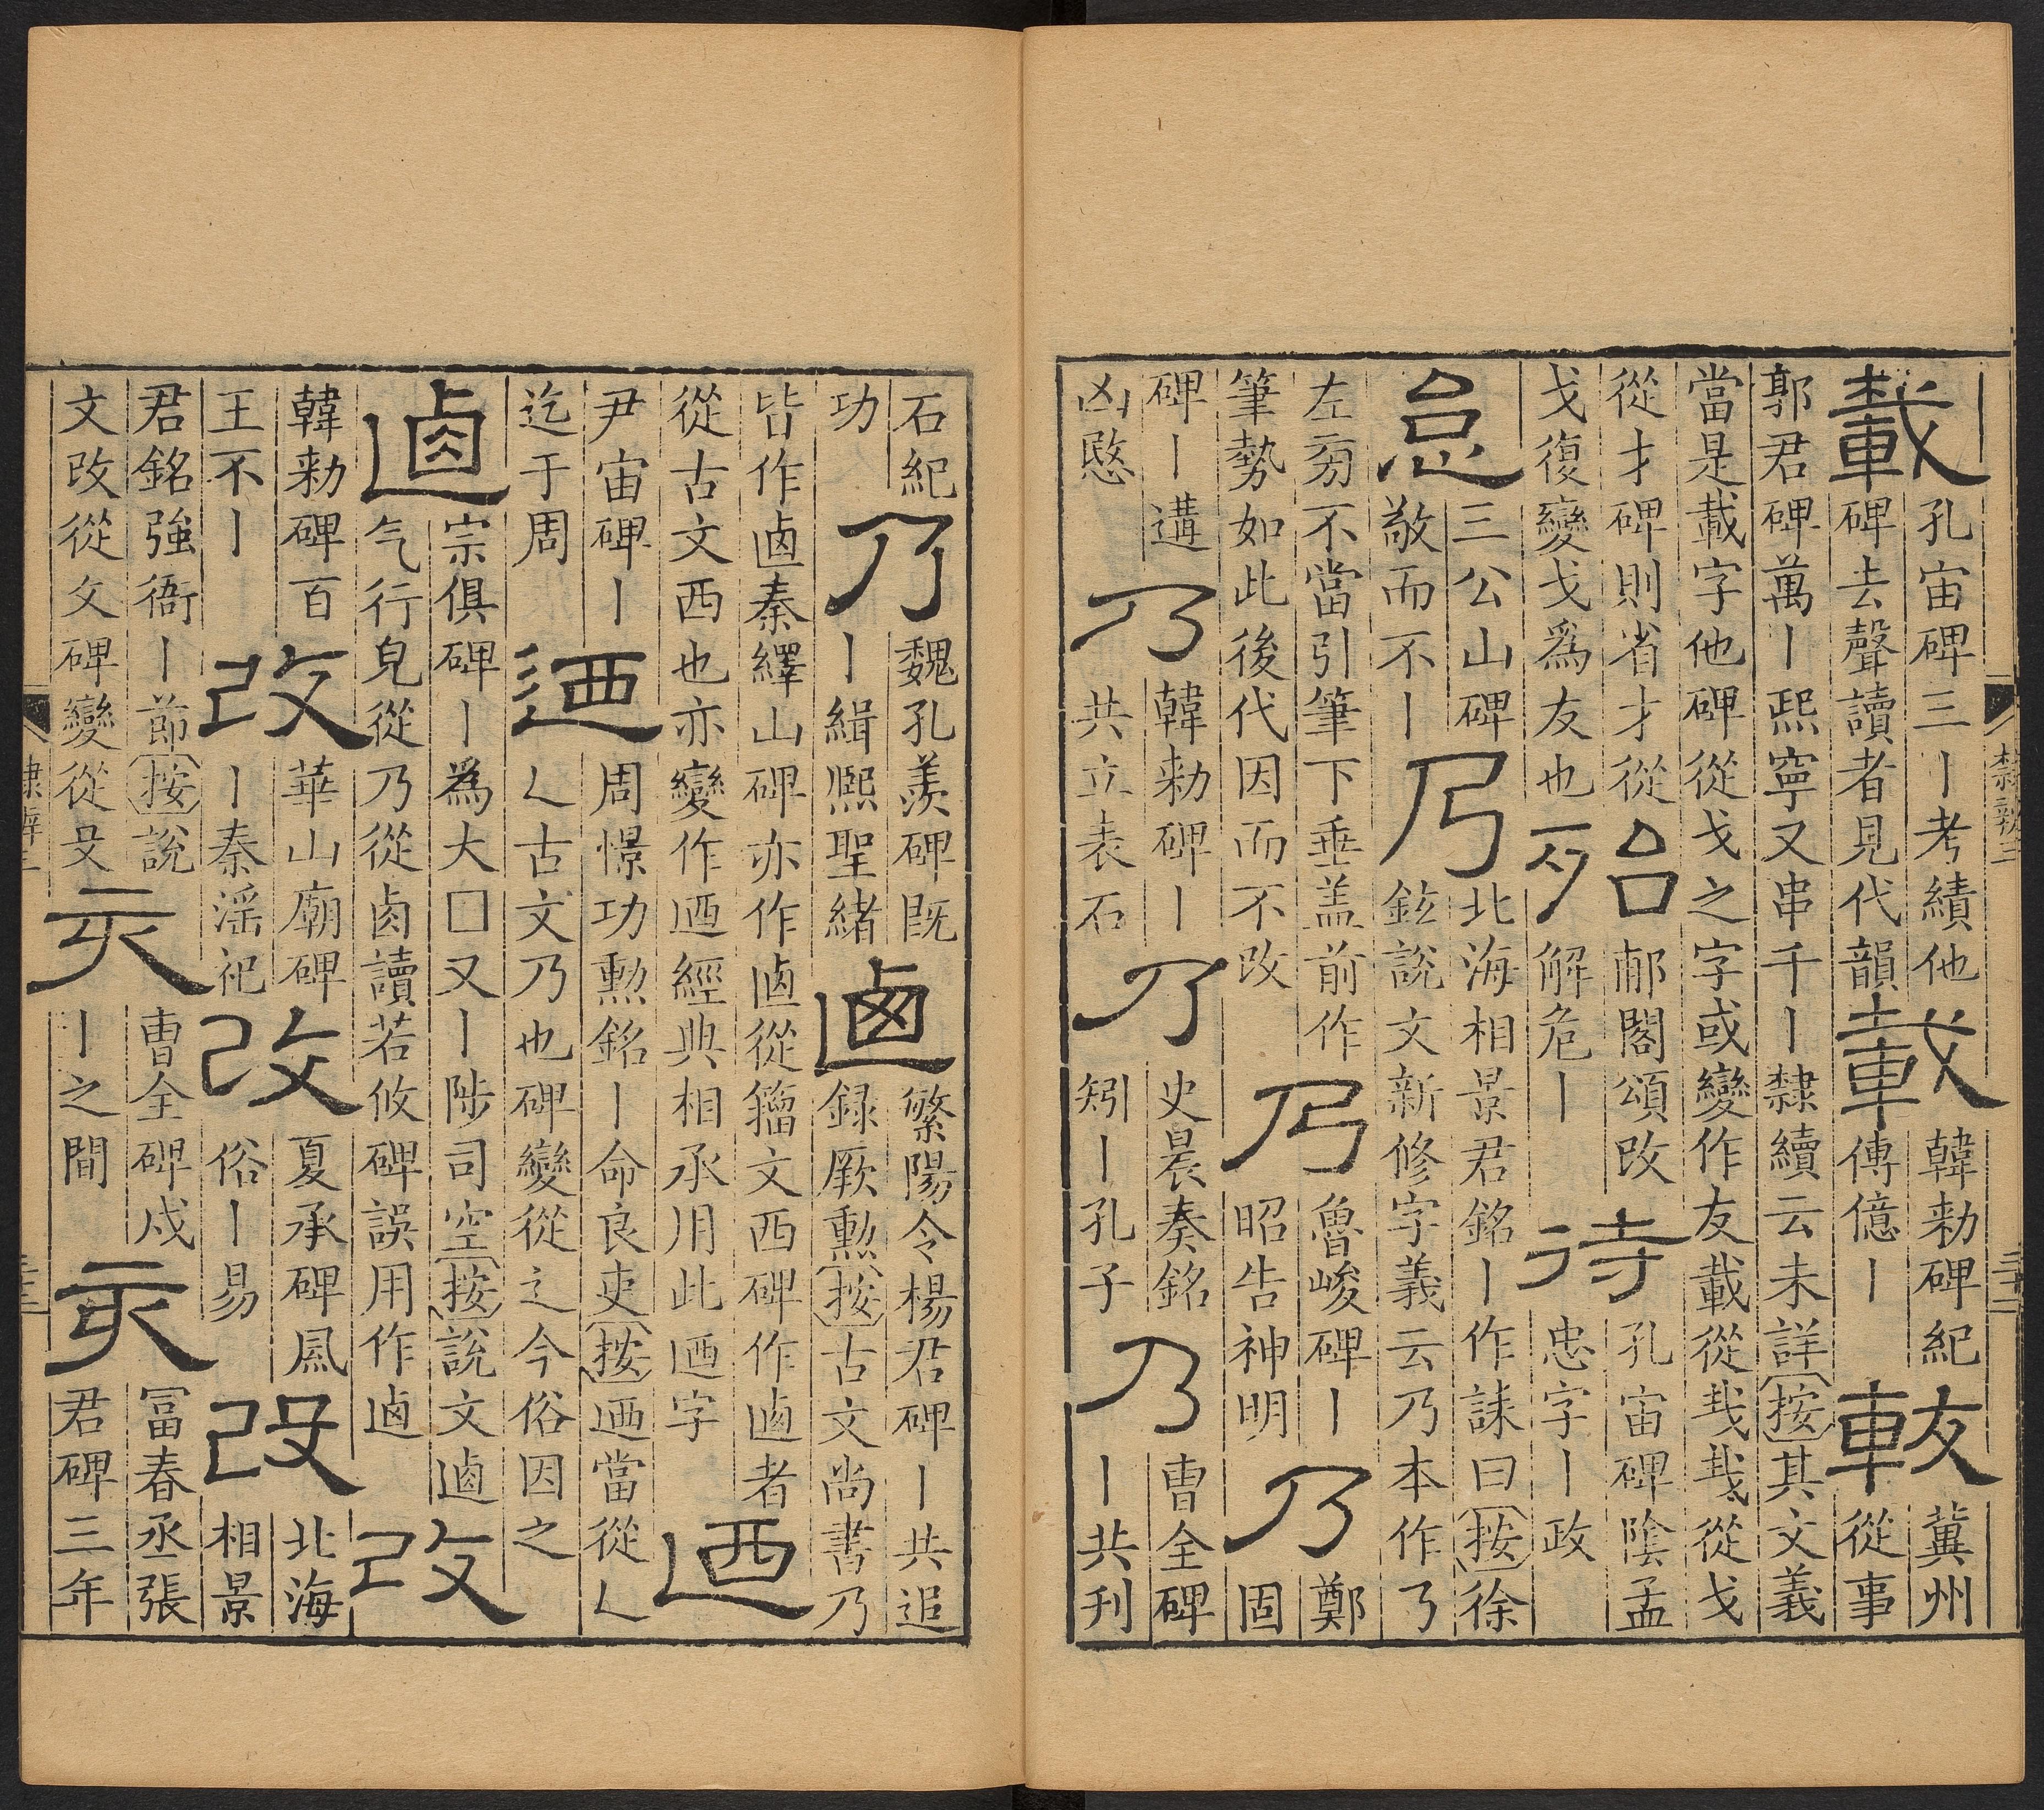 載孔宙碑三丨考績他碑去聲讀者見代韻載韓勑碑紀傳億丨載冀州從事
郭君碑萬丨熙寧又串千丨隸續云未詳按其文義當是載字他碑從戈之字或變作友載從𢦏𢦏從戈
從才碑則省才從戈復變戈爲友也殆郙閣頌改解危丨待孔宙碑陰孟忠字丨政
怠三公山碑敬而不丨乃北海相景君銘丨作誄曰按徐鉉說文新修字義云乃本作𠄎
左㫄不當引筆下垂盖前作筆勢如此後代因而不改乃魯峻碑丨昭告神明乃鄭固
碑丨遘凶愍乃韓勑碑丨共立表石乃史晨奏銘矧丨孔子乃曹全碑丨共刊
隸辨三
三十二
石紀功乃魏孔羨碑旣丨緝熙聖緒逌繁陽令楊君碑丨共追録厥勲按古文尚書乃
皆作逌秦繹山碑亦作逌從籀文西碑作逌者從古文西也亦變作迺經典相承用此迺字迺
尹宙碑丨迄于周迺周憬功勲銘丨命良吏按迺當從乚乚古文乃也碑變從辶今俗因之
逌宗俱碑丨爲大□又丨陟司空按說文逌气行皃從乃從卤讀若攸碑誤用作逌改
韓勑碑百王不丨改華山廟碑丨秦淫祀改夏承碑鳳俗丨易改北海相景
君銘強衙丨節按說文改從攵碑變從殳亥曹全碑戍丨之間亥冨春丞張君碑三年